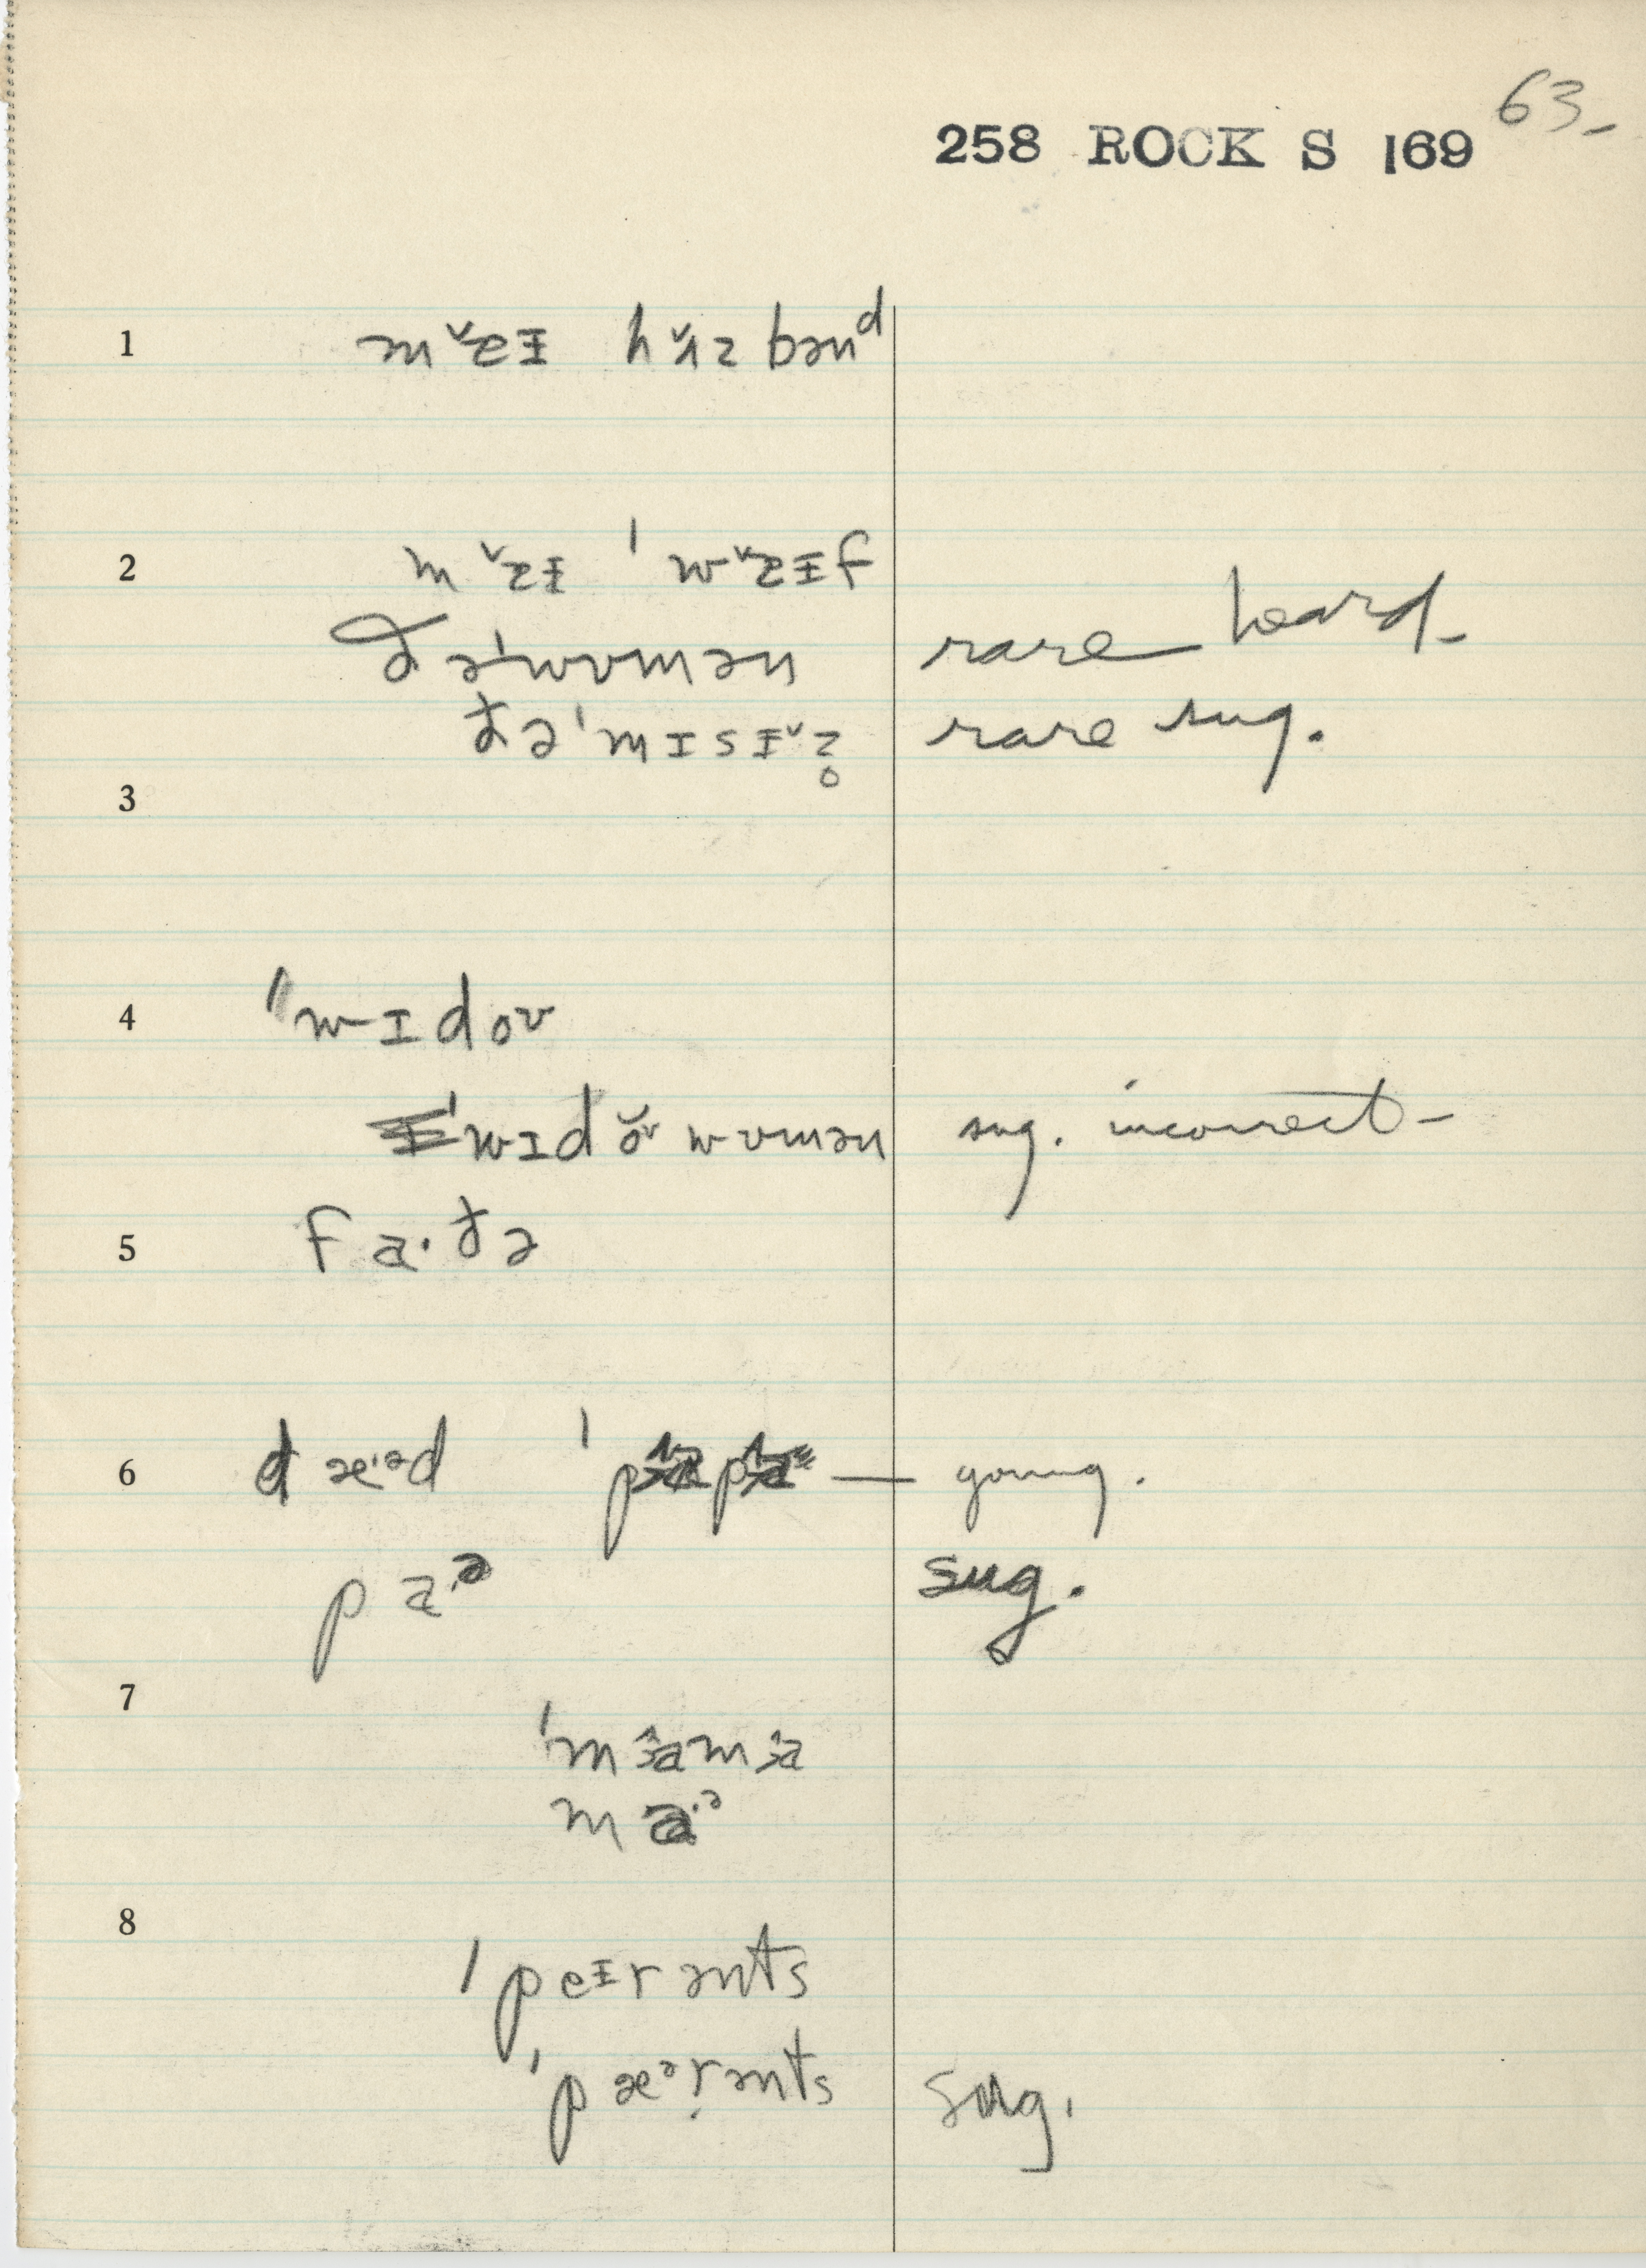 63-
258 ROCK S 169
1 mˇaɨ hʌ̌zbənᵈ
2 mˇaɨ ˈwˇaɨf
ðəˈwʊmən rare heard-
ðəˈmɪsɨˇz̥ rare sug.
3
4 ˈwɪdoʊ
ˈwɪdǒʊwʊmən sug. incorrect-
5 fa·ðə
6 dæ·ᵊd ˈp p — young.
pa·ᵊ sug.
7
ˈmɑ̂mɑ̂
ma·ᵊ
8
ˈpeɨrənts
ˈpæᵊrənts sug.